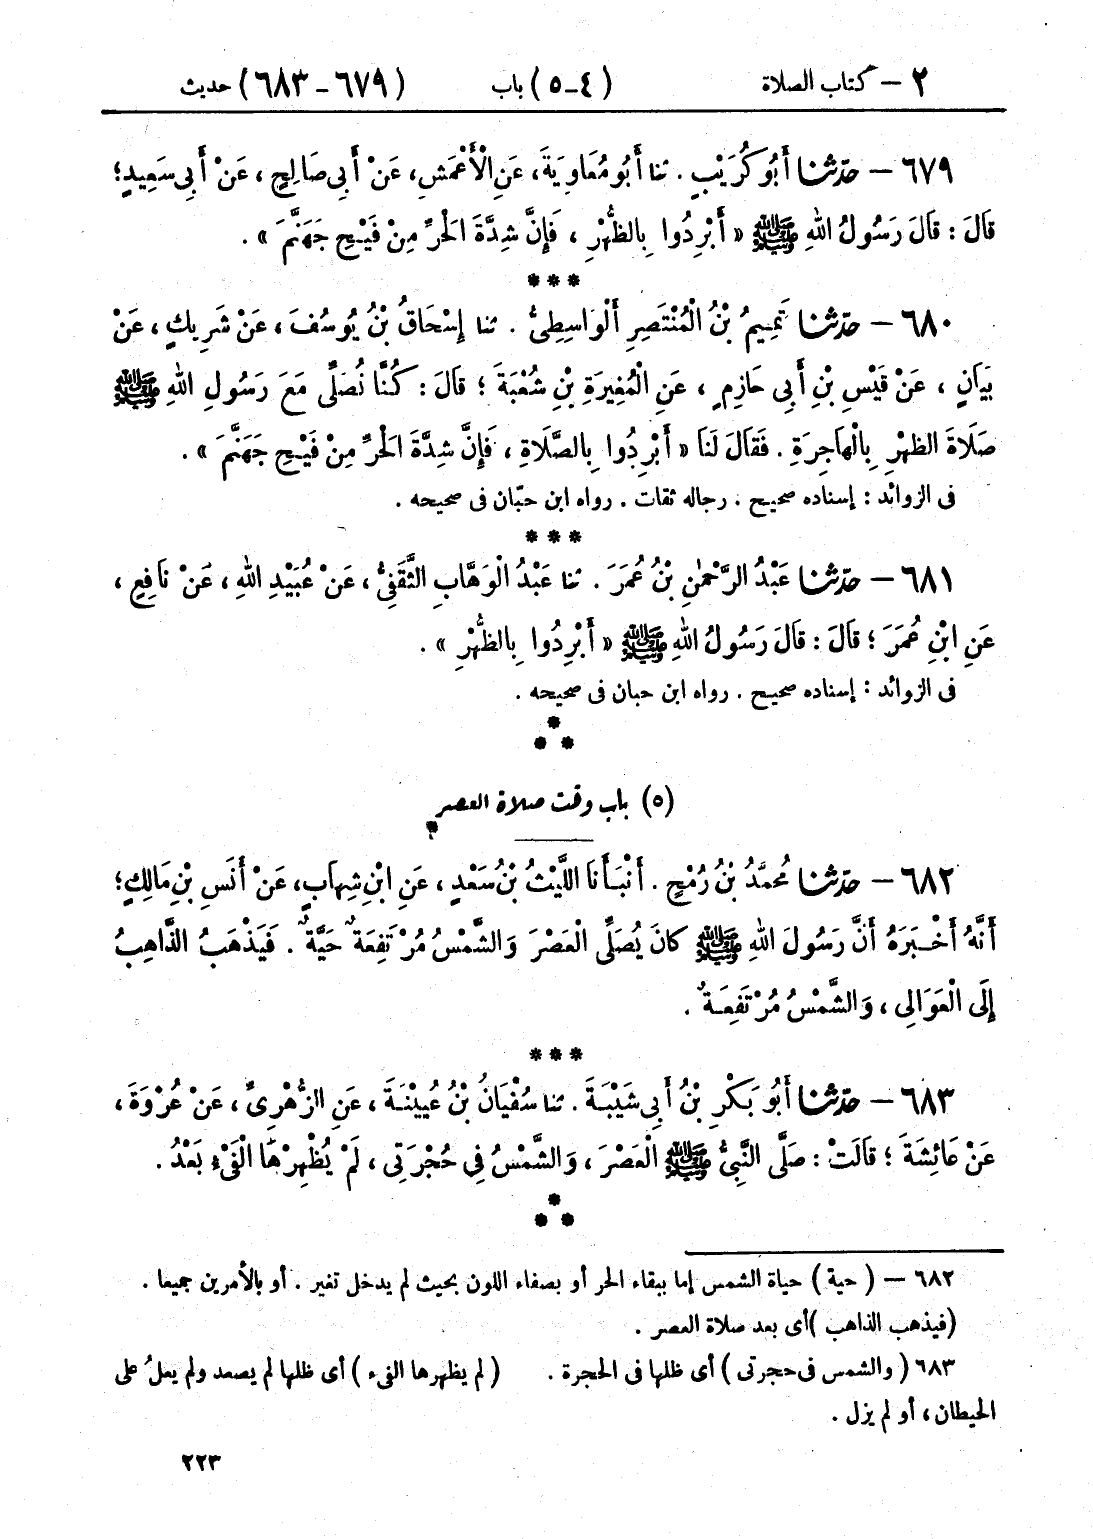 ٢ – كتاب الصلاة (٤-٥) باب (٦٧٩-٦٨٣) حديث
٦٧٩ – حدّثنا أَبُو كُرَيْبٍ . ثنا أَبُو مُعَاوِيَةَ، عَنِ الْأَعْمَشِ، عَنْ أَبِي صَالِحٍ ، عَنْ أَبِي سَعِيدٍ؛
قَالَ : قَالَ رَسُولُ اللهِ ﷺ « أَبْرِدُوا بِالظُّهْرِ ، فَإِنَّ شِدَّةَ الْحَرِّ مِنْ فَيْحِ جَهَنَّمَ » .
* * *
٦٨٠ – حدّثنا تَمِيمُ بْنُ الْمُنْتَصِرِ الْوَاسِطِىُّ . ثنا إِسْحَاقُ بْنُ يُوسُفَ ، عَنْ شَرِيكٍ ، عَنْ
بَيَانٍ ، عَنْ قَيْسِ بْنِ أَبِي حَازِمٍ ، عَنِ الْمُغِيرَةِ بْنِ شُعْبَةَ ؛ قَالَ : كُنَّا نُصَلِّى مَعَ رَسُولِ اللهِ ﷺ
صَلَاةَ الظهْرِ بِالْهَاجِرَةِ . فَقَالَ لَنَا « أَبْرِدُوا بِالصَّلَاةِ ، فَإِنَّ شِدَّةَ الْحَرِّ مِنْ فَيْحِ جَهَنَّمَ » .
فى الزوائد : إسناده صحيح . رجاله ثقات . رواه ابن حبّان فى صحيحه .
* * *
٦٨١ – حدّثنا عَبْدُ الرَّحْمٰنِ بْنُ عُمَرَ . ثنا عَبْدُ الْوَهَّابِ الثَّقَفِىُّ ، عَنْ عُبَيْدِ اللهِ ، عَنْ نَافِعٍ ،
عَنِ ابْنِ عُمَرَ ؛ قَالَ : قَالَ رَسُولُ اللهِ ﷺ « أَبْرِدُوا بِالظُّهْرِ » .
فى الزوائد : إسناده صحيح . رواه ابن حبان فى صحيحه .
* * *
(٥) باب وقت صلاة العصر
٦٨٢ – حدّثنا مُحَمَّدُ بْنُ رُمْحٍ . أَنْبَأَنَا اللَّيْثُ بْنُ سَعْدٍ ، عَنِ ابْنِ شِهَابٍ، عَنْ أَنَسِ بْنِ مَالِكٍ؛
أَنَّهُ أَخْبَرَهُ أَنَّ رَسُولَ اللهِ ﷺ كَانَ يُصَلِّى الْعَصْرَ وَالشَّمْسُ مُرْتَفِعَةٌ حَيَّةٌ . فَيَذْهَبُ الذَّاهِبُ
إِلَى الْعَوَالِى ، وَالشَّمْسُ مُرْتَفِعَةٌ .
* * *
٦٨٣ – حدّثنا أَبُو بَكْرِ بْنُ أَبِي شَيْبَةَ . ثنا سُفْيَانُ بْنُ عُيَيْنَةَ ، عَنِ الزُّهْرِىِّ ، عَنْ عُرْوَةَ ،
عَنْ عَائِشَةَ ؛ قَالَتْ : صَلَّى النَّبِىُّ ﷺ الْعَصْرَ ، وَالشَّمْسُ فِي حُجْرَتِى ، لَمْ يُظْهِرْهَا الْفَيْءُ بَعْدُ .
* * *
٦٨٢ – ( حية ) حياة الشمس إما ببقاء الحر أو بصفاء اللون بحيث لم يدخل تغير . أو بالأمرين جميعا .
(فيذهب الذاهب )أى بعد صلاة العصر .
٦٨٣ ( والشمس فى حجرتى ) أى ظلها فى الحجرة . ( لم يظهرها الفىء ) أى ظلها لم يصعد ولم يعلُ على
الحيطان ، أو لم يزل .
٢٢٣